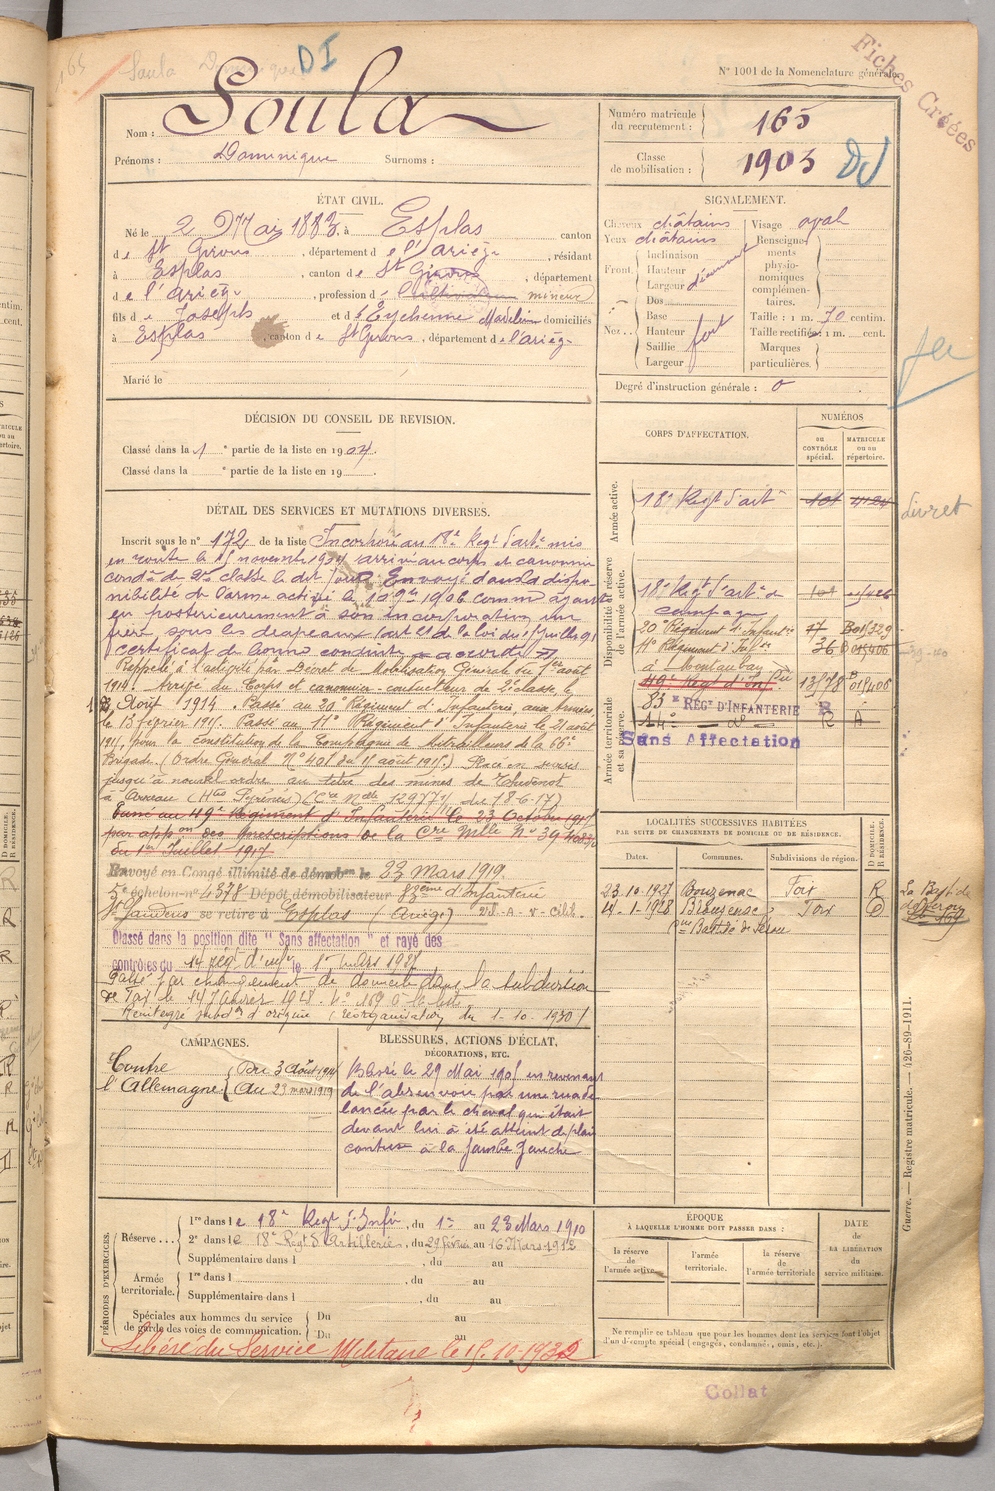 165
Soula Dominique
DI
N° 1001 de la Nomenclature générale.
Fiches Créées
Nom : Soula
Prénoms : Dominique Surnoms :
Numéro matricule du recrutement : 165
Classe de mobilisation : 1903
ÉTAT CIVIL.
Né le 2 Mai 1883, à Esplas canton
de St Girons, département de l'Ariège, résidant
à Esplas, canton de St Girons, département
de l'Ariège, profession de cultivateur mineur
fils de Joseph et de Eychenne Madeleine domiciliés
à Esplas, canton de St Girons, département de l'Ariège
Marié le
SIGNALEMENT.
Cheveux châtains Visage oval
Yeux châtains
Front. Inclinaison Hauteur Largeur
Nez... Dos Base Hauteur Saillie Largeur fort
Renseignements physionomiques complémentaires.
Taille : 1 m. 70 centim.
Taille rectifiée: 1 m. cent.
Marques particulières.
Degré d'instruction générale : 0
DÉCISION DU CONSEIL DE REVISION.
Classé dans la 1e partie de la liste en 1904.
Classé dans la e partie de la liste en 19
DÉTAIL DES SERVICES ET MUTATIONS DIVERSES.
Inscrit sous le n° 172 de la liste Incorporé au 18e Regt d'artie mis
en route le 15 novembre 1904 arrivé au corps et canonnier
condr de 2me classe le dit jour. Envoyé dans la dispo-
nibilité de l'armée active le 1906 comme ayant
eu postérieurement à son incorporation un
frère sous les drapeaux (art 21 de la loi du 15 juillet 89)
certificat de bonne conduite accordé
Rappelé à l'activité par Décret de Mobilisation Générale du 1er août
1914. Arrivé au Corps et canonnier-conducteur de 2e classe, le
Août 1914. Passé au 20e Régiment d'Infanterie, aux Armées,
le 13 février 1915. Passé au 11e Régiment d'Infanterie le 21 août
1915, pour la constitution de la Compagnie de Mitrailleuses de la 66e
Brigade. (Ordre Général N° 401 du 15 août 1915.) Placé en sursis
jusqu'à nouvel ordre au titre des mines de
à Arreau (Htes Pyrénées)
Passé au 49e Régiment d'Infanterie le 23 Octobre 1917
par appon des prescriptions de la Cre Mlle N°
du 1er Juillet 1917
Envoyé en Congé illimité de démobon le 23 Mars 1919.
5e échelon n° 4378 Dépôt démobilisateur 83ème d'Infanterie
St Gaudens se retire à Esplas (Ariège)
Classé dans la position dite "Sans affectation" et rayé des
contrôles du 14 rég. d'inf. le 1er mars 1927
Passé par changement de domicile dans la subdivision
de Foix le 14 Janvier 1928. N° 169 de la liste
Réintégré subdon d'origine (réorganisation du 1-10-1930)
CORPS D'AFFECTATION.
NUMÉROS
au CONTRÔLE spécial.
MATRICULE ou au répertoire.
Armée active.
18e Regt d'artie 101 4124
livret
Disponibilité et réserve de l'armée active.
18e Regt d'artie de campagne
20e Régiment d'Infanterie
11e Régiment d'Infie 36
à Montauban
49e Regt d'Infie
Armée territoriale et sa réserve.
83e RÉGt D'INFANTERIE
14e do R A
Sans Affectation
LOCALITÉS SUCCESSIVES HABITÉES
PAR SUITE DE CHANGEMENTS DE DOMICILE OU DE RÉSIDENCE.
Dates. Communes. Subdivisions de région. D DOMICILE. R RÉSIDENCE.
23.10.1927 Bouzenac Foix R
14-1-1928 Foix D
CAMPAGNES.
Contre l'Allemagne { Du 3 août 1914
Au 23 mars 1919
BLESSURES, ACTIONS D'ÉCLAT, DÉCORATIONS, ETC.
Blessé le 29 Mai 1905 en revenant
de l'abreuvoir par une ruade
lancée par le cheval qui était
devant lui a été atteint de plaie
contuse à la jambe gauche
PÉRIODES D'EXERCICES.
Réserve... 1re dans le 18e Regt d'Infie, du 1er au 23 Mars 1910
2e dans le 18e Régt d'Artillerie, du 29 février au 16 Mars 1912
Supplémentaire dans l , du au
Armée territoriale. 1re dans l , du au
Supplémentaire dans l , du au
Spéciales aux hommes du service de garde des voies de communication. Du au
Du au
Libéré du Service Militaire le 15-10-1932
ÉPOQUE
À LAQUELLE L'HOMME DOIT PASSER DANS :
la réserve de l'armée active.
l'armée territoriale.
la réserve de l'armée territoriale
DATE de LA LIBÉRATION du service militaire.
Ne remplir ce tableau que pour les hommes dont les services font l'objet d'un décompte spécial (engagés, condamnés, omis, etc.).
Guerre. — Registre matricule. — 426-89-1911.
Collat